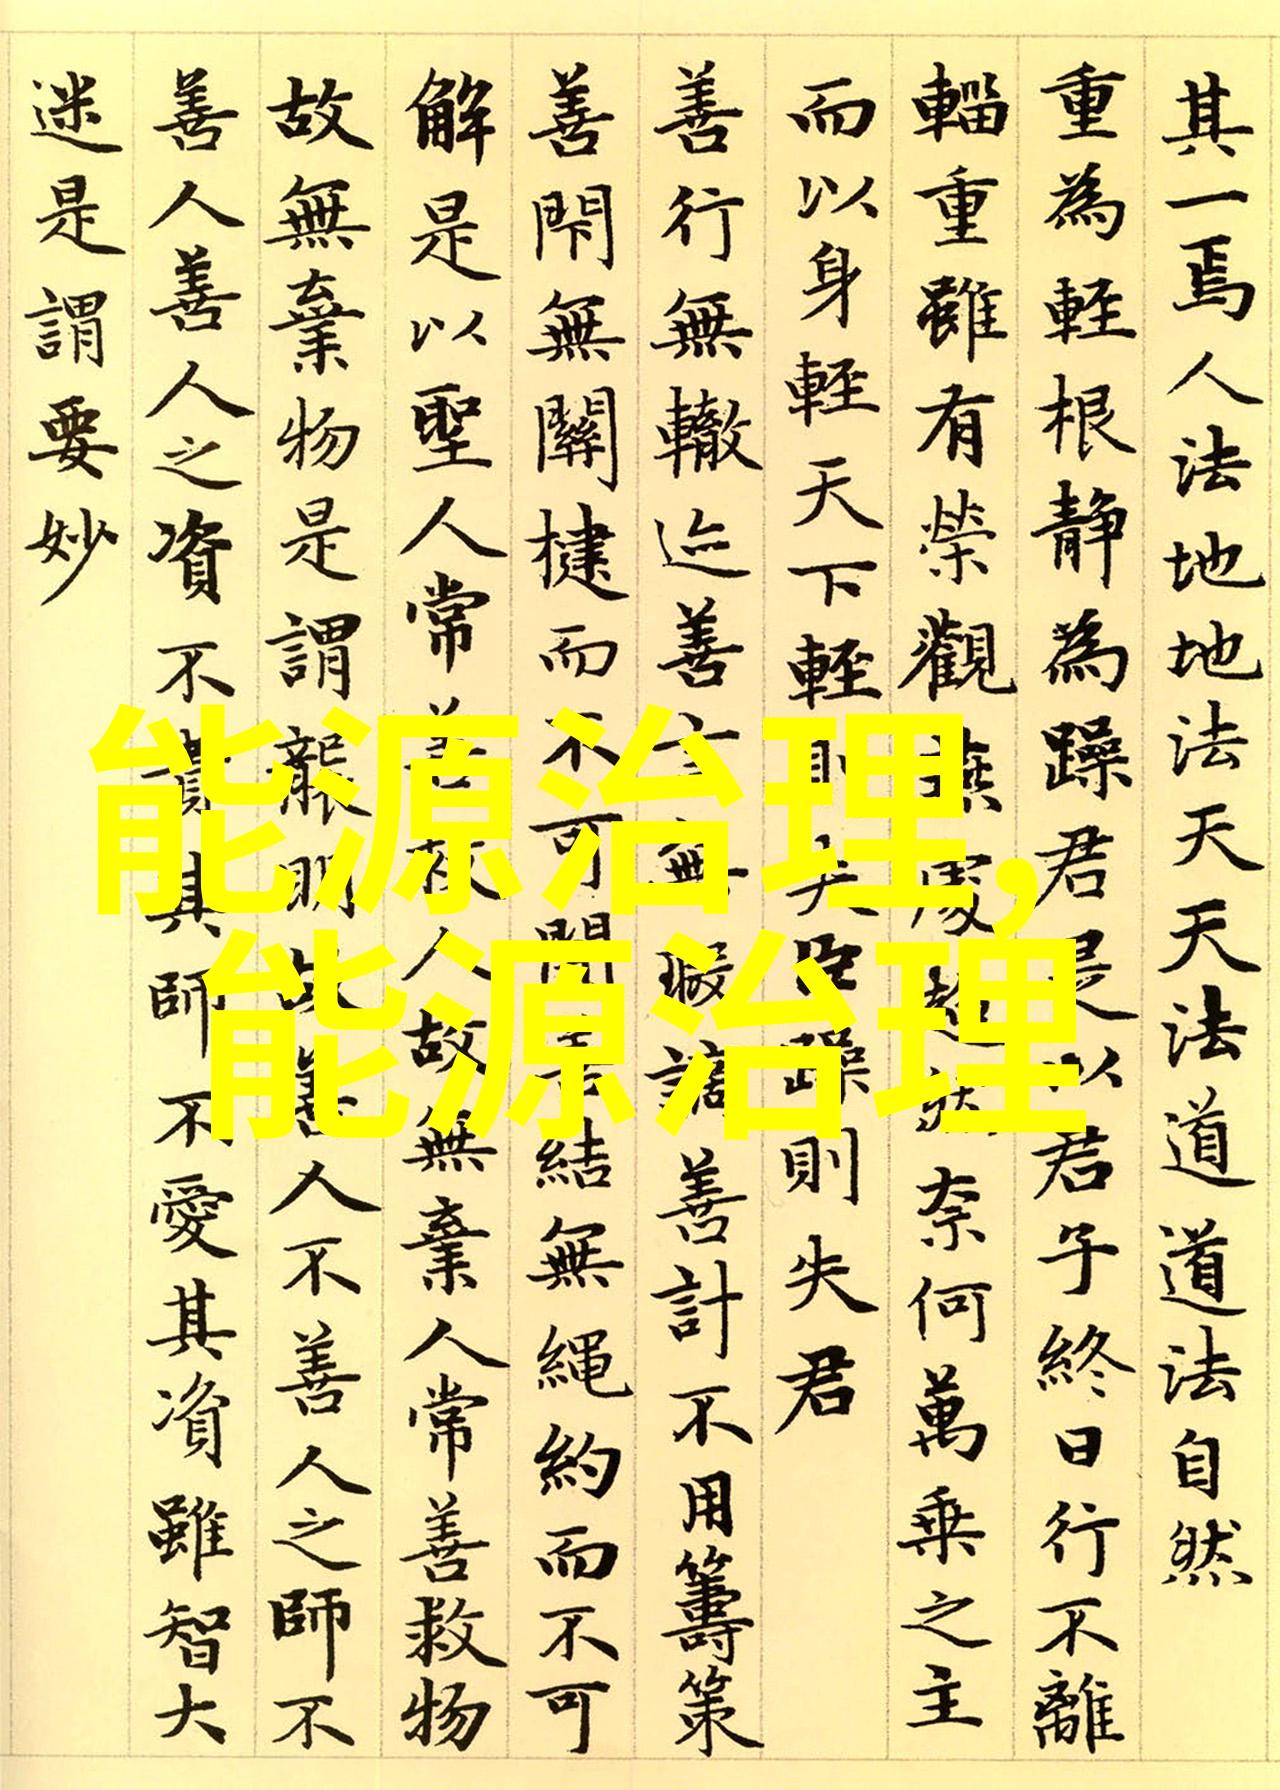 其一焉人法地地法天天法道道法自然
重為輕根静為躁君是以君子終日行不離
輜重雖有榮觀燕處超然奈何萬乗之主
而以身輕天下輕則失臣躁則失君
善行無轍迹善言無瑕謫善計不用籌策
善閇無關楗而不可開善結無繩約而不可
解是以聖人常善救人故無棄人常善救物
故無棄物是謂襲明故善人不善人之師不
善人善人之資不貴其師不愛其資雖智大
迷是謂要妙
能源治理,
能源治理